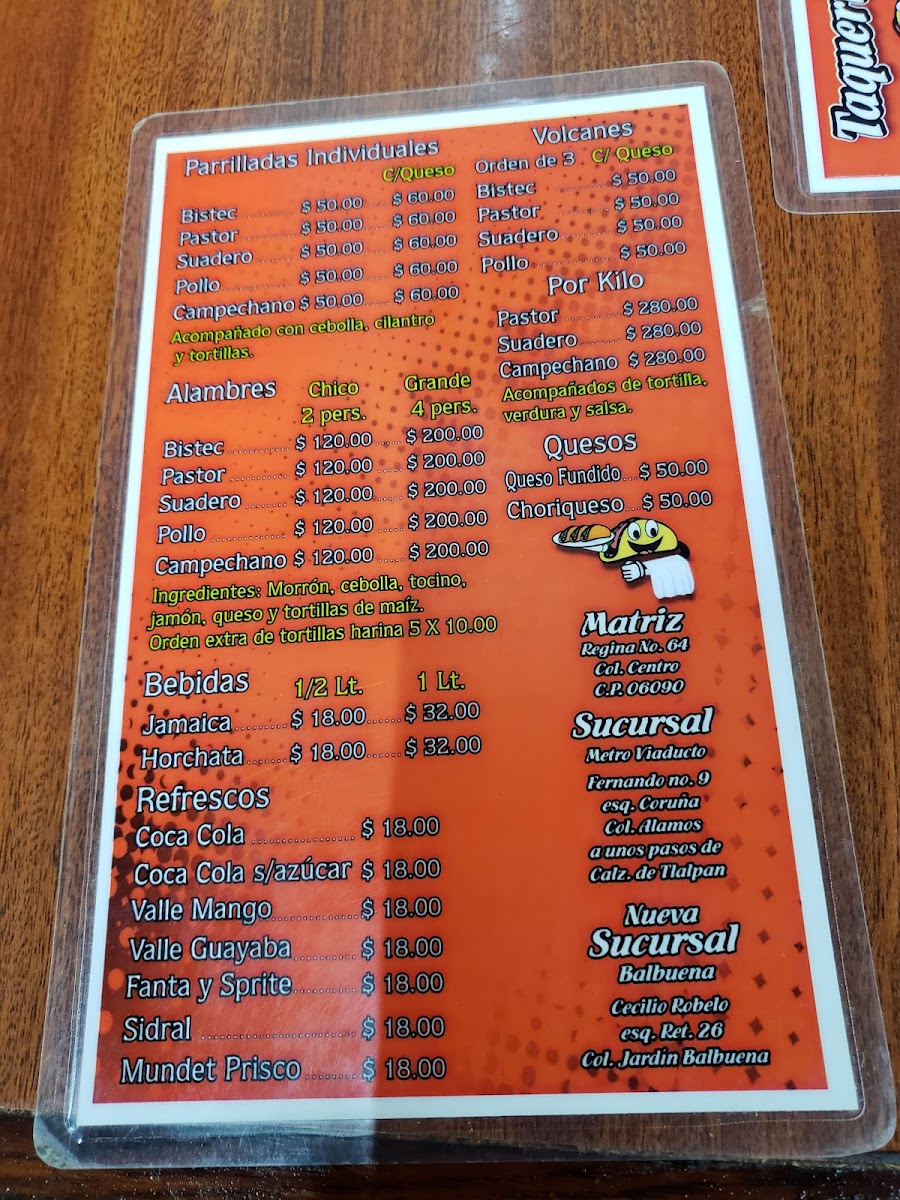 Parrilladas Individuales
C/Queso
Bistec ........... $ 50.00 ..... $ 60.00
Pastor ........... $ 50.00 ..... $ 60.00
Suadero ........ $ 50.00 ..... $ 60.00
Pollo .............. $ 50.00 ..... $ 60.00
Campechano $ 50.00 ..... $ 60.00
Acompañado con cebolla, cilantro
y tortillas.
Alambres Chico Grande
2 pers. 4 pers.
Bistec ............ $ 120.00 ..... $ 200.00
Pastor ........... $ 120.00 ..... $ 200.00
Suadero ........ $ 120.00 .... $ 200.00
Pollo .............. $ 120.00 ..... $ 200.00
Campechano $ 120.00 ..... $ 200.00
Ingredientes: Morrón, cebolla, tocino,
jamón, queso y tortillas de maíz.
Orden extra de tortillas harina 5 X 10.00
Bebidas 1/2 Lt. 1 Lt.
Jamaica ......... $ 18.00 ...... $ 32.00
Horchata ....... $ 18.00 ...... $ 32.00
Refrescos
Coca Cola ................ $ 18.00
Coca Cola s/azúcar $ 18.00
Valle Mango ............. $ 18.00
Valle Guayaba .......... $ 18.00
Fanta y Sprite .......... $ 18.00
Sidral ........................ $ 18.00
Mundet Prisco ........ $ 18.00
Volcanes
Orden de 3 C/ Queso
Bistec ........... $ 50.00
Pastor ........... $ 50.00
Suadero ........ $ 50.00
Pollo .............. $ 50.00
Por Kilo
Pastor ........... $ 280.00
Suadero ........ $ 280.00
Campechano $ 280.00
Acompañados de tortilla,
verdura y salsa.
Quesos
Queso Fundido ... $ 50.00
Choriqueso ... $ 50.00
Matriz
Regina No. 64
Col. Centro
C.P. 06090
Sucursal
Metro Viaducto
Fernando no. 9
esq. Coruña
Col. Alamos
a unos pasos de
Calz. de Tlalpan
Nueva
Sucursal
Balbuena
Cecilio Robelo
esq. Ret. 26
Col. Jardín Balbuena